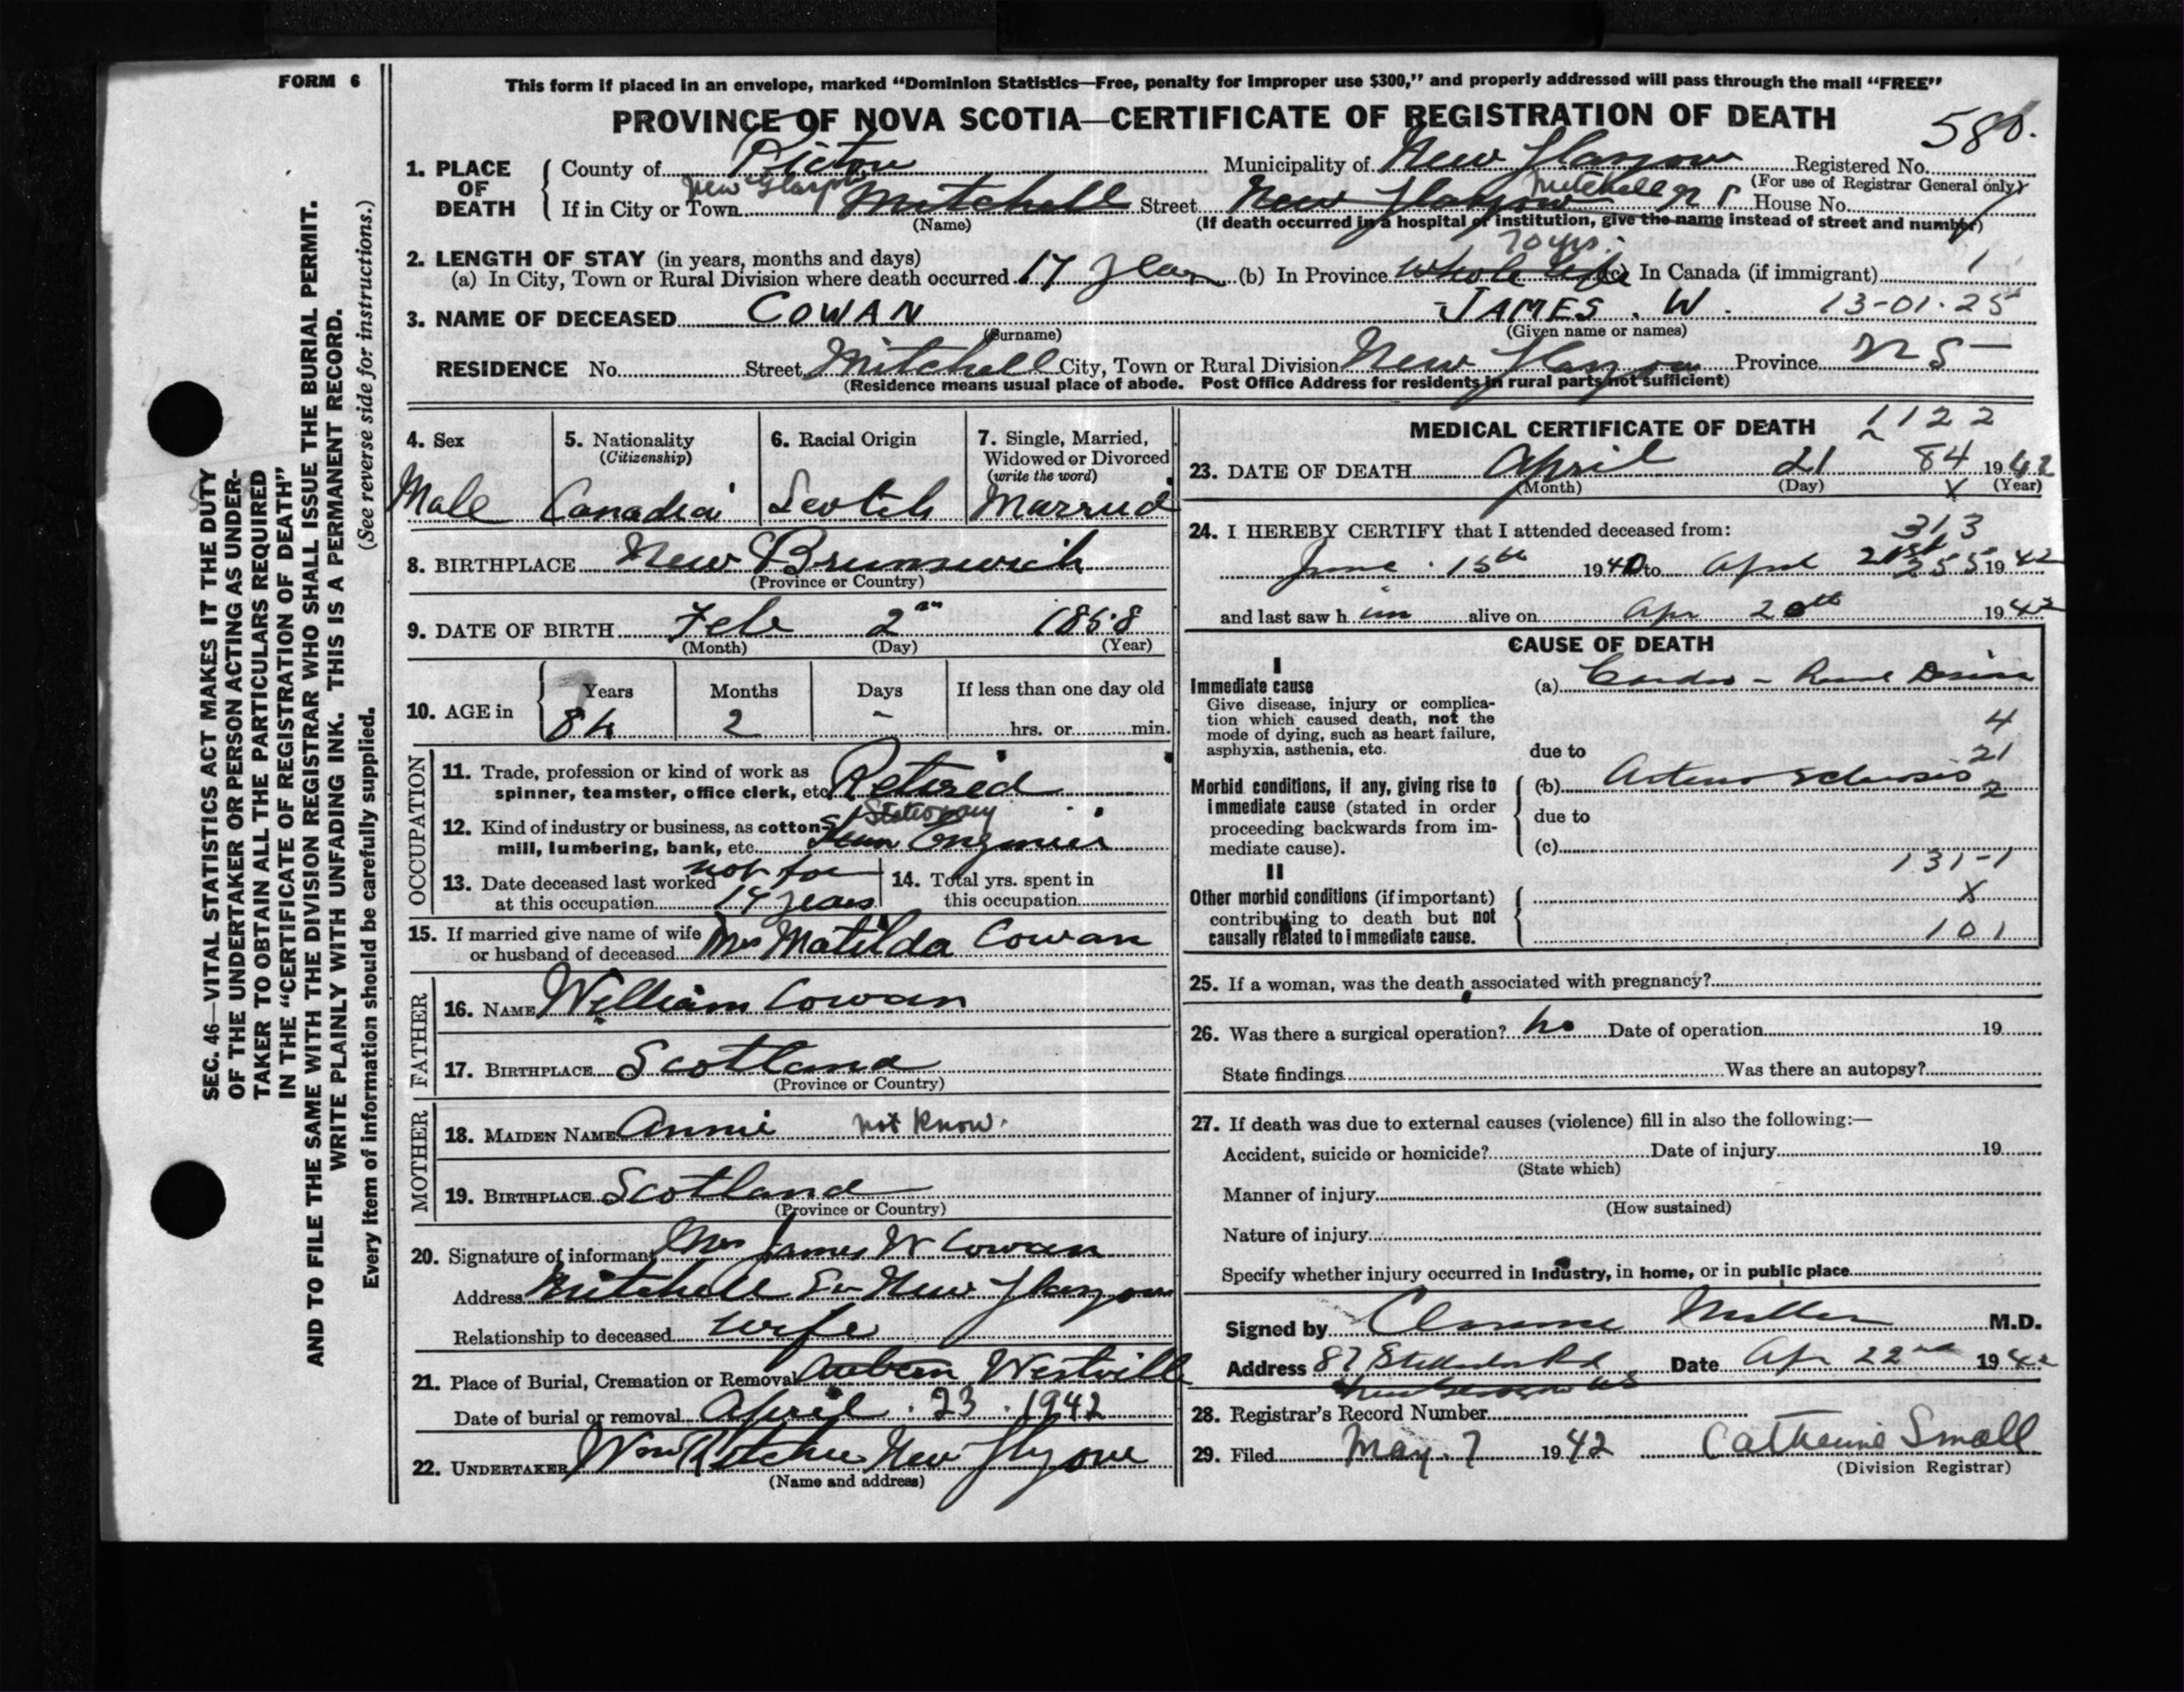 FORM 6
This form if placed in an envelope, marked "Dominion Statistics—Free, penalty for improper use $300," and properly addressed will pass through the mail "FREE"
PROVINCE OF NOVA SCOTIA—CERTIFICATE OF REGISTRATION OF DEATH
1. PLACE OF DEATH
County of Pictou Municipality of New Glasgow Registered No.
(For use of Registrar General only)
New Glasgow Mitchell N S
If in City or Town Mitchell Street New Glasgow House No.
(Name) (If death occurred in a hospital or institution, give the name instead of street and number)
2. LENGTH OF STAY (in years, months and days) 70 yrs.
(a) In City, Town or Rural Division where death occurred 17 year (b) In Province Whole Life (c) In Canada (if immigrant)
3. NAME OF DECEASED COWAN JAMES . W . 13-01-25
(Surname) (Given name or names)
RESIDENCE No. Street Mitchell City, Town or Rural Division New Glasgow Province N S
(Residence means usual place of abode. Post Office Address for residents in rural parts not sufficient)
4. Sex
Male
5. Nationality
(Citizenship)
Canadia
6. Racial Origin
Scotch
7. Single, Married, Widowed or Divorced
(write the word)
Married
8. BIRTHPLACE New Brunswick
(Province or Country)
9. DATE OF BIRTH Feb 2 1858
(Month) (Day) (Year)
10. AGE in
Years Months Days If less than one day old
84 2 - hrs. or min.
OCCUPATION
11. Trade, profession or kind of work as
spinner, teamster, office clerk, etc. Retired
Stationary
12. Kind of industry or business, as cotton-
mill, lumbering, bank, etc. Steam Engineer
13. Date deceased last worked not for
at this occupation 14 years
14. Total yrs. spent in
this occupation
15. If married give name of wife
or husband of deceased Mrs Matilda Cowan
FATHER
16. NAME William Cowan
17. BIRTHPLACE Scotland
(Province or Country)
MOTHER
18. MAIDEN NAME Annie not know.
19. BIRTHPLACE Scotland
(Province or Country)
20. Signature of informant Mrs James W Cowan
Address Mitchell St New Glasgow
Relationship to deceased wife
21. Place of Burial, Cremation or Removal Auburn Westville
Date of burial or removal April . 23 . 1942
22. UNDERTAKER Wm Ritchie New Glasgow
(Name and address)
MEDICAL CERTIFICATE OF DEATH 1122
23. DATE OF DEATH April 21 84 1942
(Month) (Day) X (Year)
24. I HEREBY CERTIFY that I attended deceased from:
313
June 15th 1940 to April 21st 255 1942
and last saw h im alive on Apr 20th 1942
CAUSE OF DEATH
I
Immediate cause
Give disease, injury or complica-
tion which caused death, not the
mode of dying, such as heart failure,
asphyxia, asthenia, etc.
(a) Cardio - Renal Disease
4
due to 21
Morbid conditions, if any, giving rise to
immediate cause (stated in order
proceeding backwards from im-
mediate cause).
(b) Arterio Sclerosis 2
due to
(c)
131-1
II
Other morbid conditions (if important)
contributing to death but not
causally related to immediate cause.
X
101
25. If a woman, was the death associated with pregnancy?
26. Was there a surgical operation? no Date of operation 19
State findings Was there an autopsy?
27. If death was due to external causes (violence) fill in also the following:—
Accident, suicide or homicide? Date of injury 19
(State which)
Manner of injury
(How sustained)
Nature of injury
Specify whether injury occurred in industry, in home, or in public place
Signed by Clarence Miller M.D.
Address 87 Stellarton Rd Date Apr 22nd 1942
28. Registrar's Record Number
29. Filed May. 7 1942 Catherine Small
(Division Registrar)
SEC. 46—VITAL STATISTICS ACT MAKES IT THE DUTY
OF THE UNDERTAKER OR PERSON ACTING AS UNDER-
TAKER TO OBTAIN ALL THE PARTICULARS REQUIRED
IN THE "CERTIFICATE OF REGISTRATION OF DEATH"
AND TO FILE THE SAME WITH THE DIVISION REGISTRAR WHO SHALL ISSUE THE BURIAL PERMIT.
WRITE PLAINLY WITH UNFADING INK. THIS IS A PERMANENT RECORD.
Every item of information should be carefully supplied. (See reverse side for instructions.)